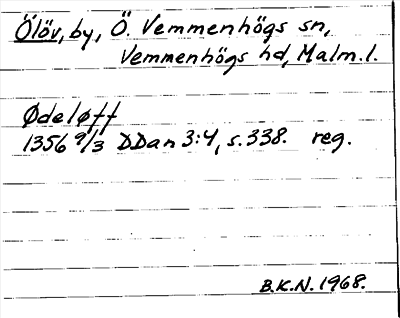 Ölöv, by, Ö. Vemmenhögs sn,
Vemmenhögs hd, Malm. l.
Ødeløff
1356 9/3 DDan 3:4, s. 338. reg.
B.K.N. 1968.